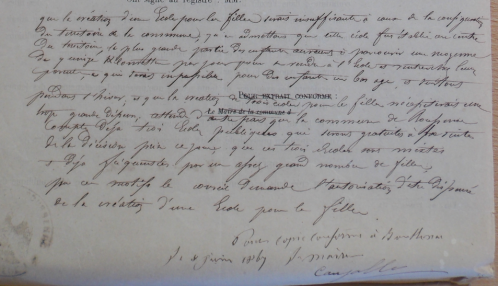 Ont signé au registre : MM.
que la création d'une Ecole pour les filles serait insuffisante à cause de la configuration
du territoire de la commune, qu'en admettant que cette école fut établie au centre
du territoire, la plus grande partie des enfants auraient à parcourir en moyenne
de quinze kilomètres par jour pour se rendre à l'Ecole et
ce qui serait impossible pour des enfants en bas age, et surtout
pendant l'hiver, et que la création de trois écoles pour les filles nécessiterait une
POUR EXTRAIT CONFORME :
trop grande dépense, attendu que la commune de
Le Maire de la commune d
compte déjà trois Ecoles publiques qui seront gratuites à la suite
de la décision prise ce jour, que ces trois écoles sont mixtes
et déjà fréquentées par un assez grand nombre de filles,
par ces motifs le conseil demande l'autorisation d'être dispensé
de la création d'une Ecole pour les filles
Pour copie conforme à
le 8 juin 1867 le maire